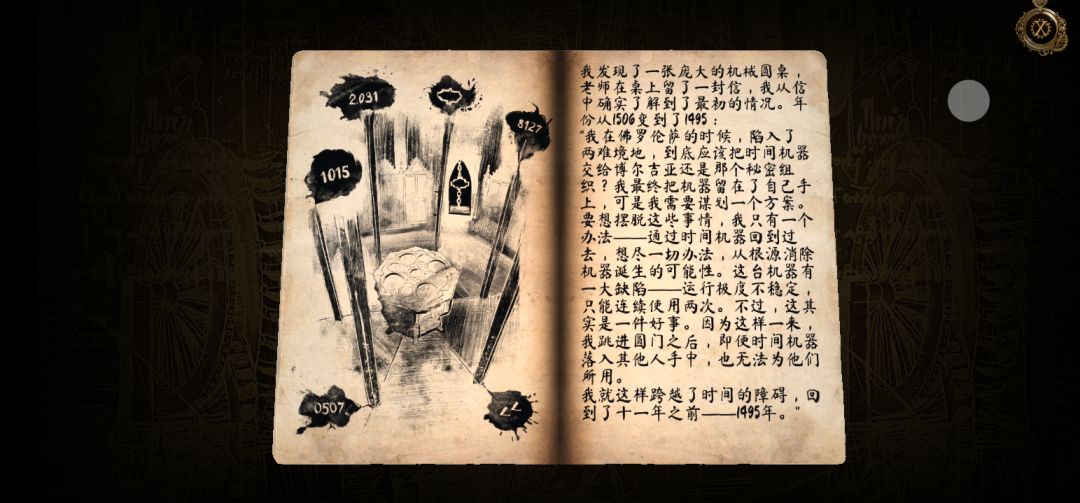 2031
8127
1015
0507
我发现了一张庞大的机械圆桌，
老师在桌上留了一封信，我从信
中确实了解到了最初的情况。年
份从1506变到了1495：
“我在佛罗伦萨的时候，陷入了
两难境地，到底应该把时间机器
交给博尔吉亚还是那个秘密组
织？我最终把机器留在了自己手
上，可是我需要谋划一个方案。
要想摆脱这些事情，我只有一个
办法——通过时间机器回到过
去，想尽一切办法，从根源消除
机器诞生的可能性。这台机器有
一大缺陷——运行极度不稳定，
只能连续使用两次。不过，这其
实是一件好事。因为这样一来，
我跳进圆门之后，即使时间机器
落入其他人手中，也无法为他们
所用。
我就这样跨越了时间的障碍，回
到了十一年之前——1495年。”